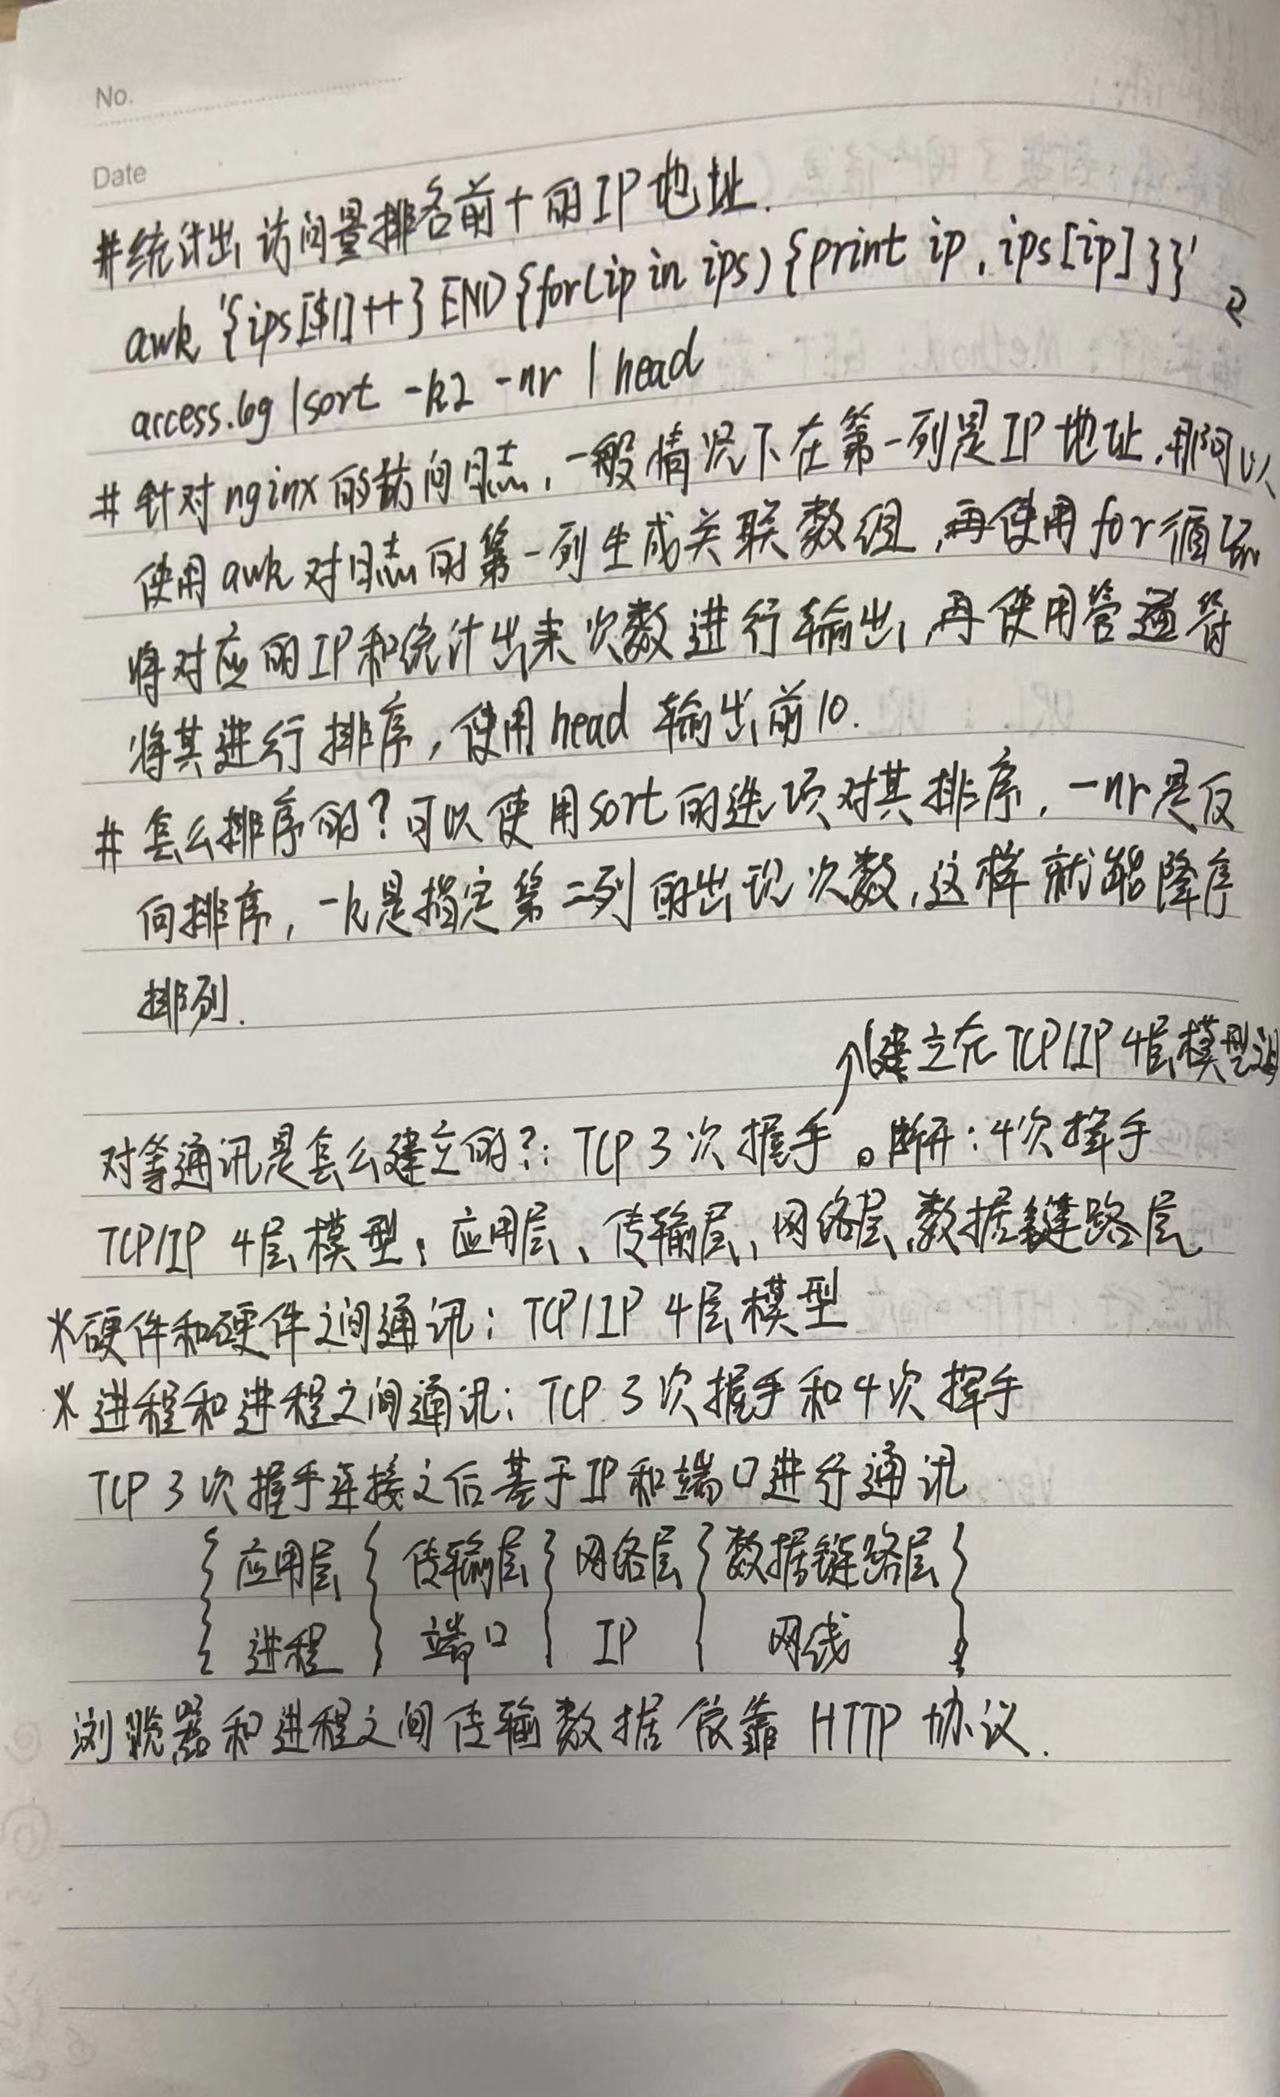 No.
Date
#统计出访问量排名前十的IP地址.
awk '{ips[$1]++}END{for(ip in ips){print ip,ips[ip]}}'
access.log |sort -k2 -nr | head
# 针对nginx的访问日志,一般情况下在第一列是IP地址,那可以
使用awk对日志的第一列生成关联数组,再使用for循环
将对应的IP和统计出来次数进行输出,再使用管道符
将其进行排序,使用head 输出前10.
# 怎么排序的?可以使用sort的选项对其排序,-nr是反
向排序,-k是指定第二列的出现次数,这样就能降序
排列.
建立在TCP/IP 4层模型
对等通讯是怎么建立的?:TCP 3次握手。断开:4次挥手
TCP/IP 4层模型:应用层、传输层、网络层、数据链路层
*硬件和硬件之间通讯:TCP/IP 4层模型
*进程和进程之间通讯:TCP 3次握手和4次挥手
TCP 3次握手连接之后基于IP和端口进行通讯
{应用层{传输层}网络层}数据链路层}
进程 端口 IP 网线
浏览器和进程之间传输数据依靠 HTTP 协议.